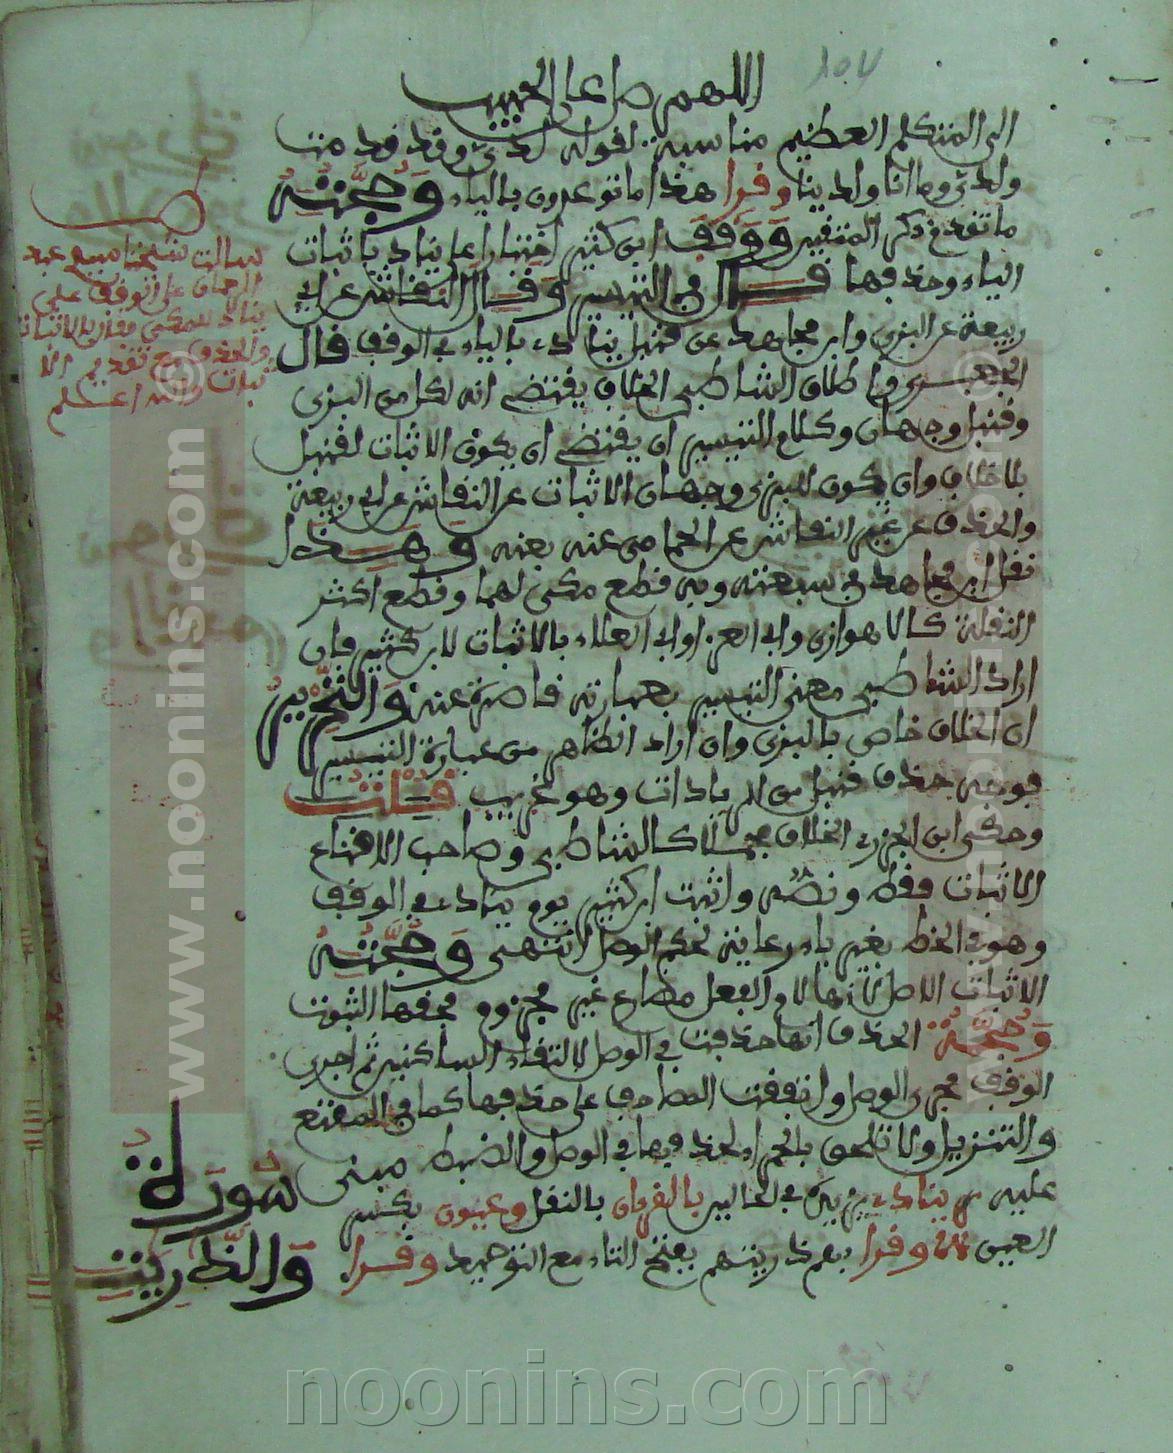 ١٥٧
اللهم صل على الحبيب
الى المتكلم العظيم مناسبة لقوله لدي وقد قدمت
ولدي وما انا ولدينا وقرا هذا ما توعدون بالياء وحجته
ما تقدم ذكر المتقين ووقف ابن كثير اختيارا على يناد باثبات
الياء وحذفها قال في التيسير وقال النقاش عن ابي
ربيعة عن البزي وابن مجاهد عن قنبل ينادي بالياء في الوقف قال
الجعبري واطلاق الشاطبي الخلاف يقتضي انه لكل من البزي
وقنبل وجهان وكلام التيسير ان يقتضي ان يكون الاثبات لقنبل
بلا خلاف وان يكون للبزي وجهان الاثبات عن النقاش عن ابي ربيعة
والحذف عن غير النقاش عن الحمامي عنه بعنه وهذا
نقل ابن مجاهد في سبعته وبه قطع مكي لهما وقطع اكثر
النقلة كالاهوازي وابي العز وابي العلاء بالاثبات لابن كثير فان
اراد الشاطبي معنى التيسير بعبارته قاصرة عنه والتحرير
ان الخلاف خاص بالبزي وان اراد الظاهر من عبارة التيسير
فوجه حذف قنبل من الزيادات وهو غريب قلت
وحكى ابن الجزري الخلاف مجملا كالشاطبي وصاحب الاقناع
الاثبات فقط ونصه واثبت ابن كثير يوم ينادي في الوقف
وهو في الخط بغير ياء رعاية لحكم الوصل انتهى وحجته
الاثبات الاصل لانها لام الفعل مضارع غير مجزوم فحقها الثبوت
وحجة الحذف انها حذفت في الوصل لالتقاء الساكنين ثم اجرى
الوقف مجرى الوصل واتفقت المصاحف على حذفها كما في المقنع
والتنزيل ولا تلحق بالحمراء لحذفها في الوصل والضبط مبني
عليه ينادي في الحالين بالقرءان بالنقل وعيون بكسر
العين وقرا بهم ذريتهم بفتح التاء مع التوحيد وقرا
سورة
والذاريات
سالت شيخنا سيدي عبد
الرحمان على الوقف على
يناد للمكي فقال بالاثبات
والحذف مع تقديم الا
ثبات والله اعلم
www.noonins.com ©
www.noonins.com ©
noonins.com